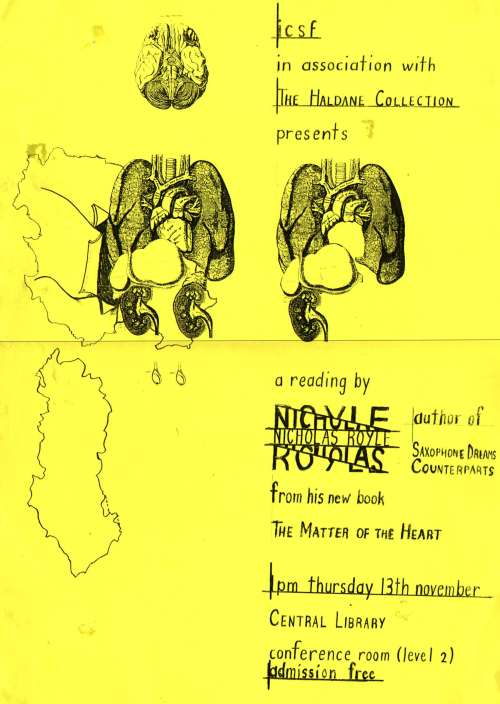 icsf
in association with
THE HALDANE COLLECTION
presents
a reading by
NICHOLAS ROYLE
author of
SAXOPHONE DREAMS
COUNTERPARTS
from his new book
THE MATTER OF THE HEART
1pm thursday 13th november
CENTRAL LIBRARY
conference room (level 2)
admission free